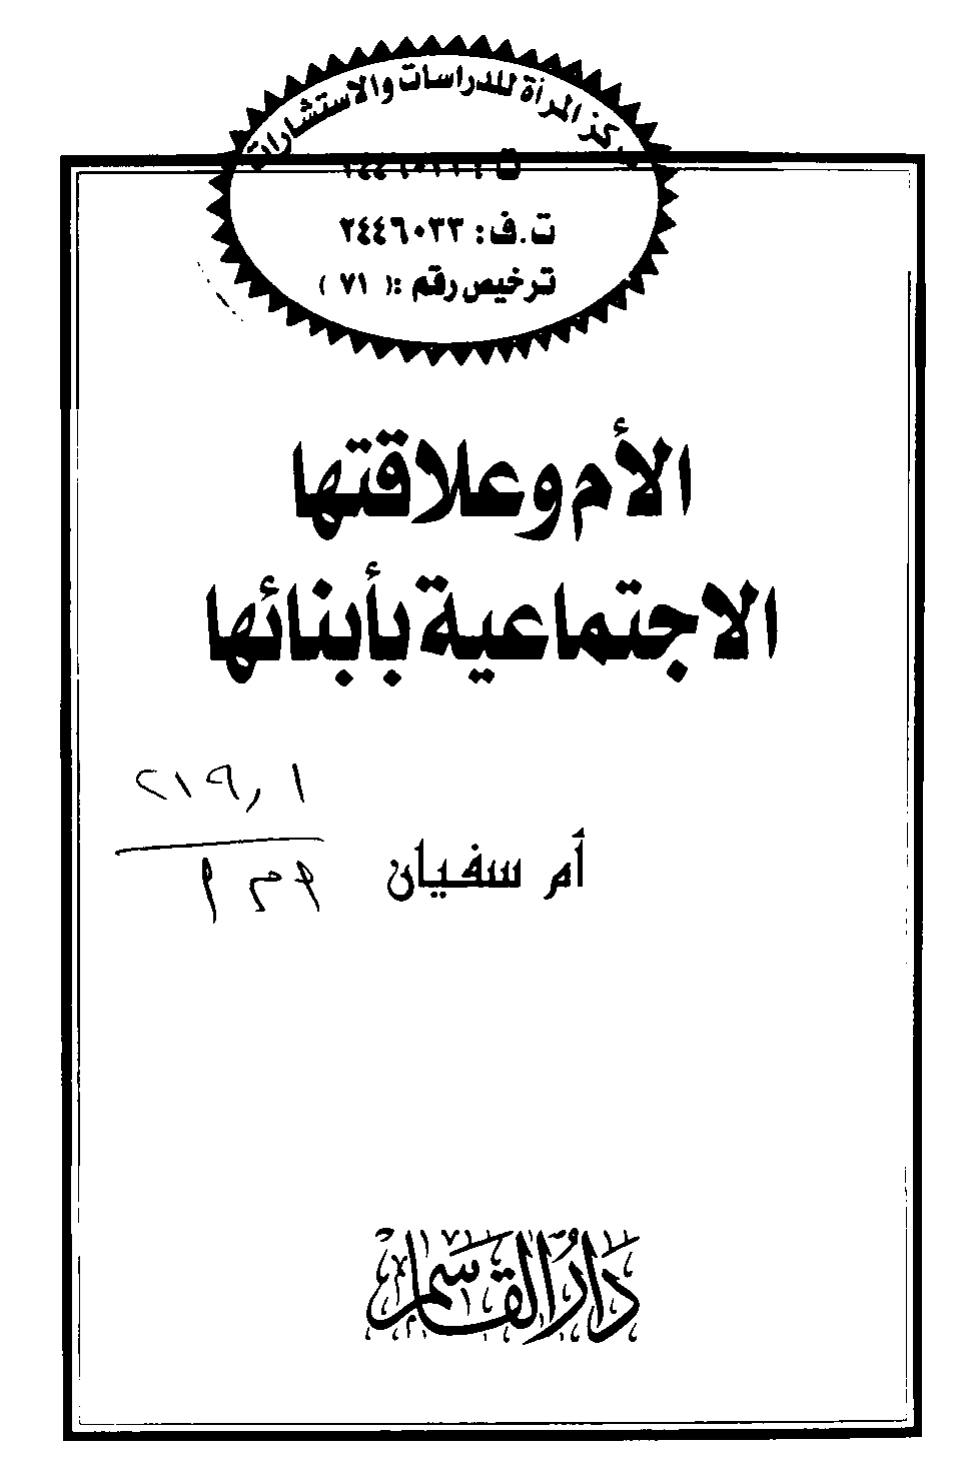 مركز المرأة للدراسات والاستشارات
ت.ف: ٢٤٤٦٠٣٣
ترخيص رقم :( ٧١ )
الأم وعلاقتها
الاجتماعية بأبنائها
٢١٩,١
أم سفيان
أ م أ
دار القاسم